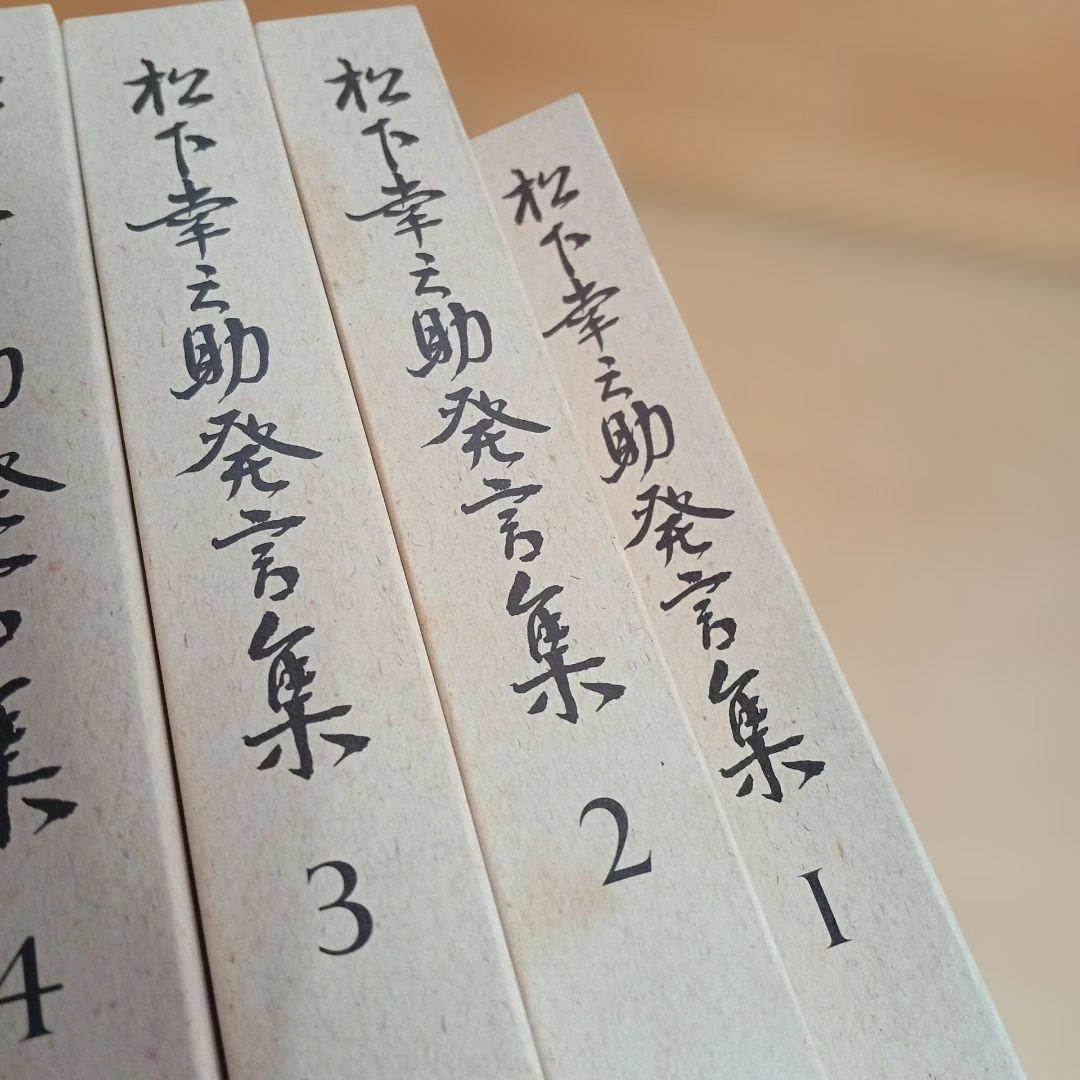 松下幸之助発言集
1
松下幸之助発言集
2
松下幸之助発言集
3
集
4